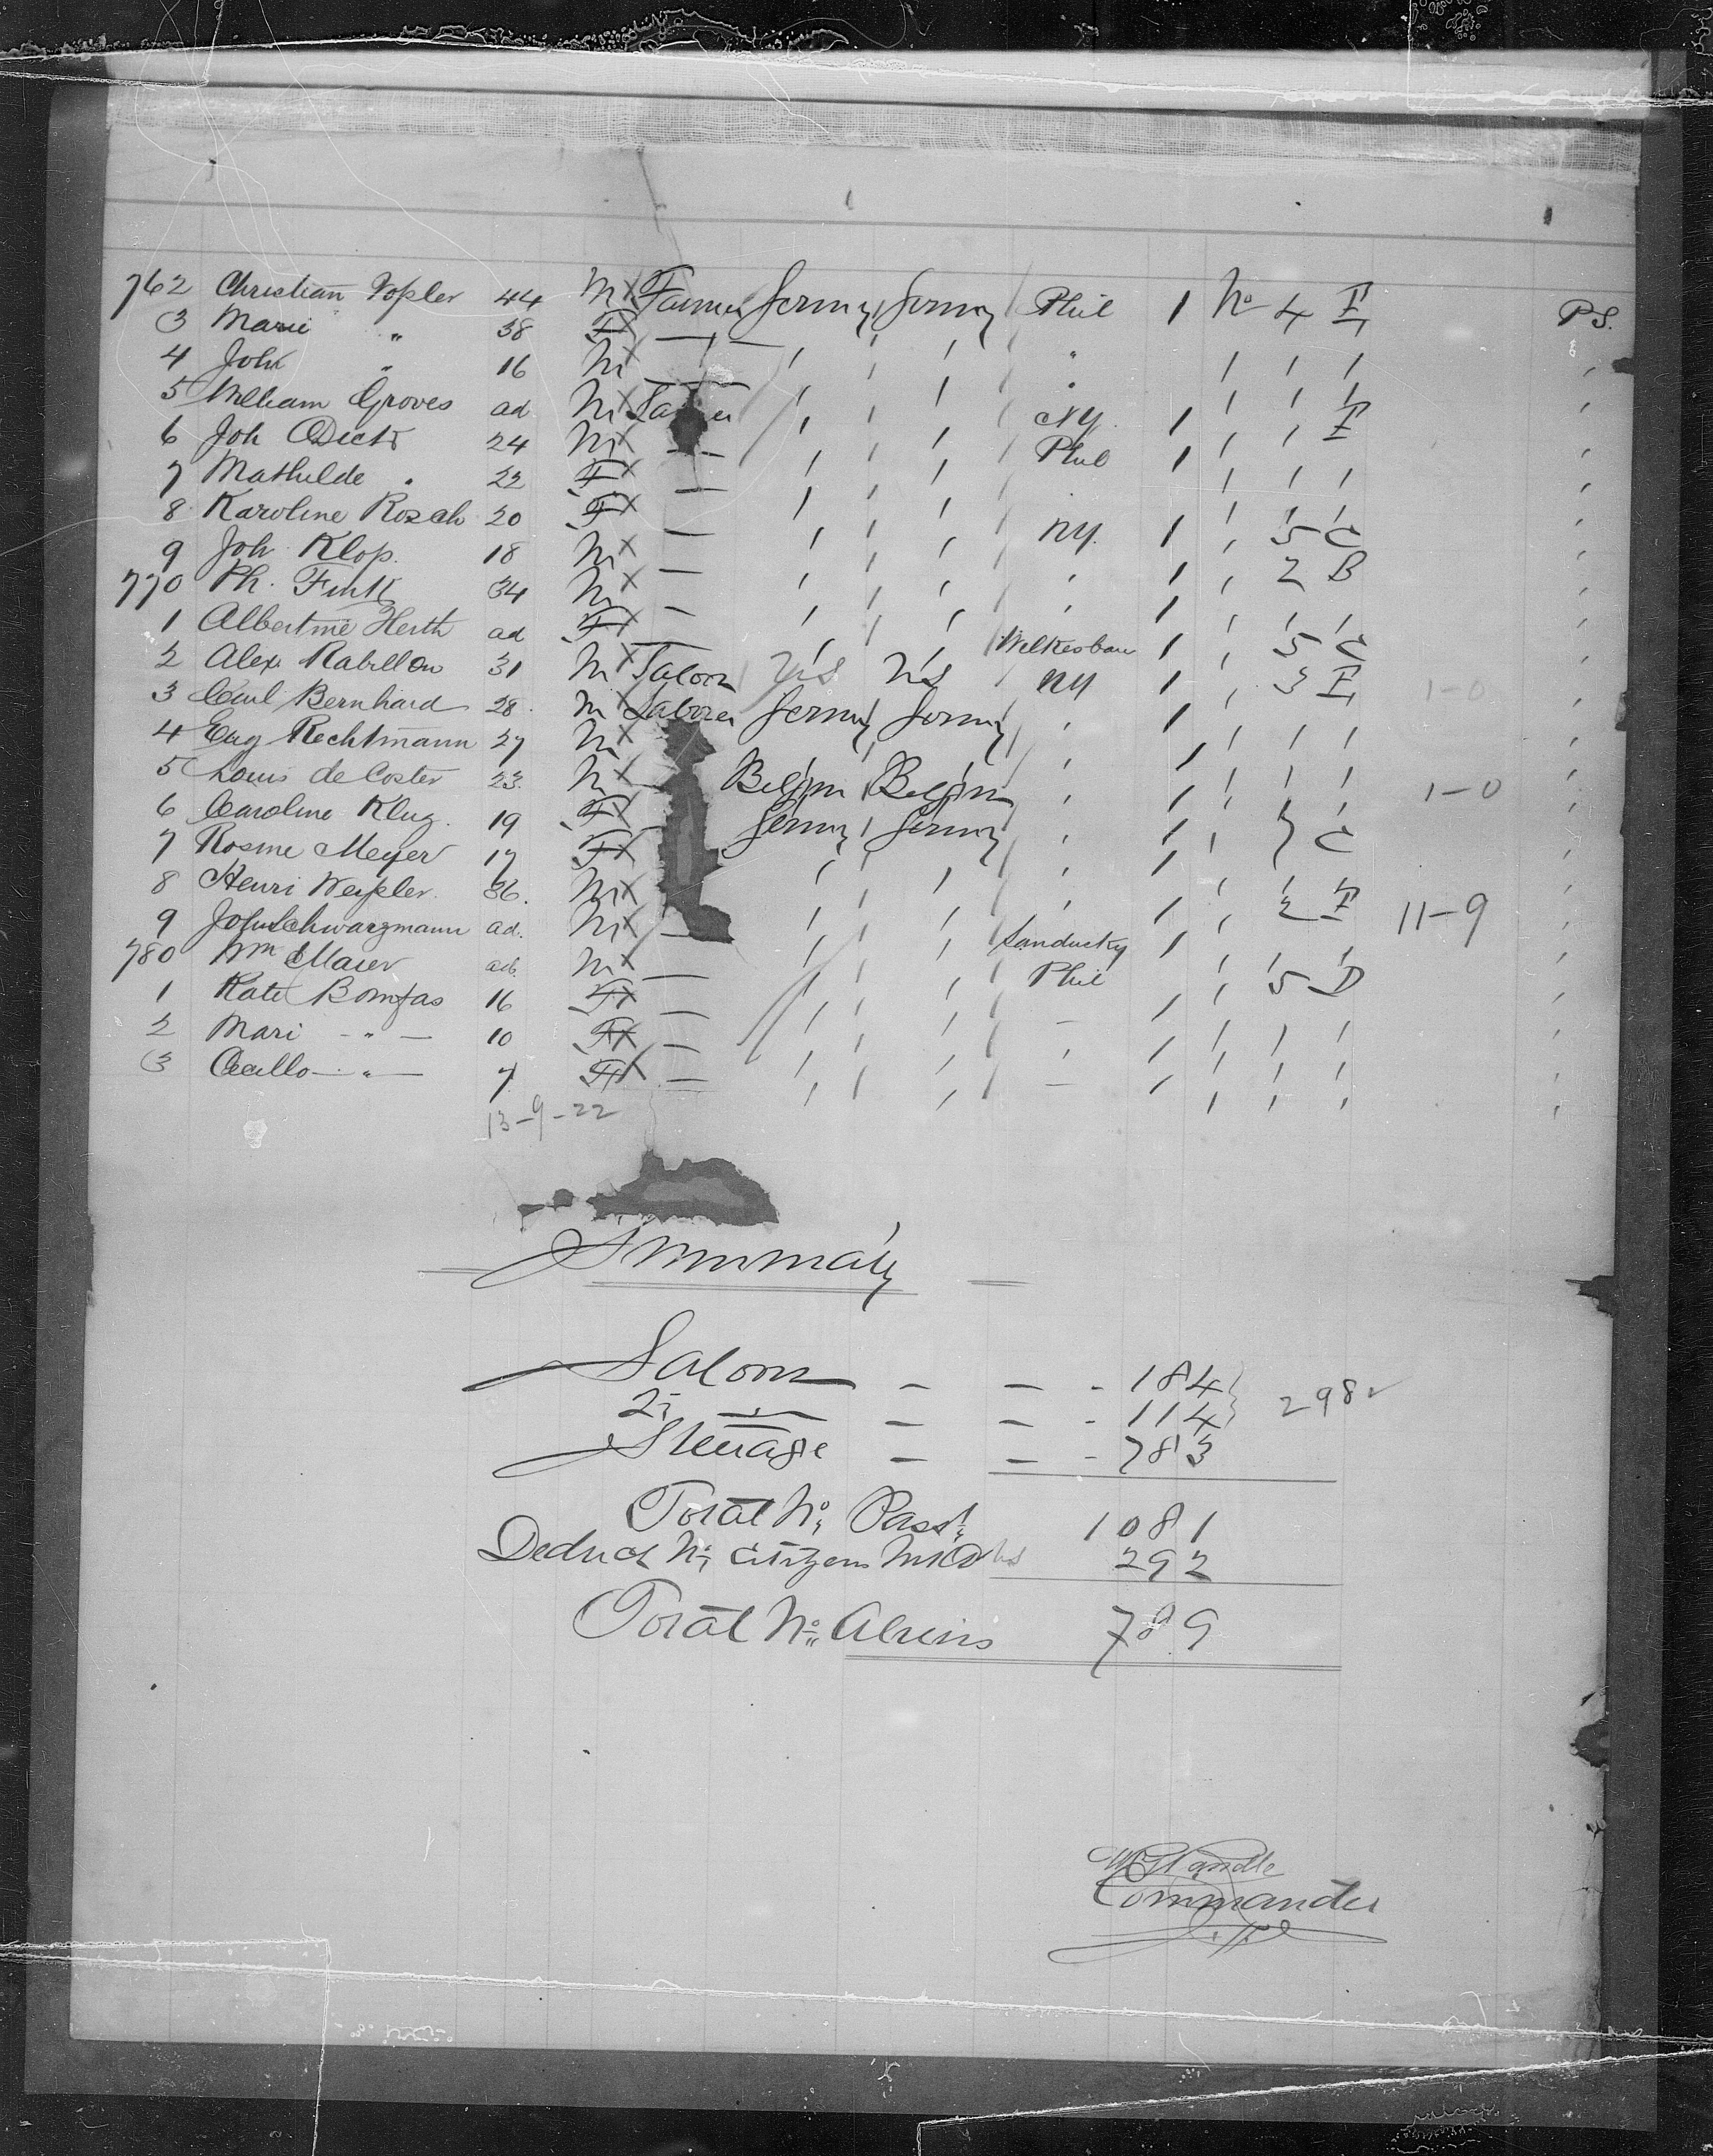 762 Christian Topler 44 M Farmer Germy Germy Phil 1 No 4 E PS.
3 Marie " 38 F — ' ' " ' ' ' '
4 John " 16 M ' ' " ' ' ' '
5 William Groves ad M ' ' NY. 1 ' ' E '
6 Joh Dick 24 M — ' ' Phil 1 ' ' ' '
7 Mathilde " 22 F — ' ' ' ' ' '
8 Karoline Rosch 20 F — ' ' NY. 1 ' 5 C '
9 Joh Klop. 18 M — ' ' ' 1 ' 2 B '
770 Ph. Fink 34 M — ' ' ' 1 ' ' ' '
1 Albertine Herth ad F ' ' Wilkesbare 1 ' 5 C '
2 Alex Rabillon 31 M US US NY 1 ' 3 E 1-0
3 Carl Bernhard 28 M Laborer Germy Germy ' 1 ' ' ' '
4 Eug Rechtmann 27 M ' ' ' 1 ' ' ' '
5 Louis de Coster 23. M — Belgim Belgim ' 1 ' ' ' 1-0 '
6 Caroline Klug. 19 F Germy Germy ' 1 ' 7 C '
7 Rosine Meyer 17 F ' ' ' 1 ' ' ' '
8 Henri 36. M ' ' ' 1 ' 2 E 11-9 '
9 Joh Schwarzmann ad. M — ' ' Sandusky 1 ' ' ' '
780 Wm Maier ad. M — ' ' Phil 1 ' 5 D '
1 Kate Bomfas 16 F — ' ' — ' ' ' ' '
2 Mari - " — 10 F — ' ' ' ' ' ' ' '
3 — " — 7 F — ' ' — ' ' ' ' '
13-9-22
Summary
Saloon - - - 184
298
2; — " — - - - 114
Steerage - - - 783
Total No; Pass; 1081
Deduct No; citizens 292
Total No; Aliens 789
Commander